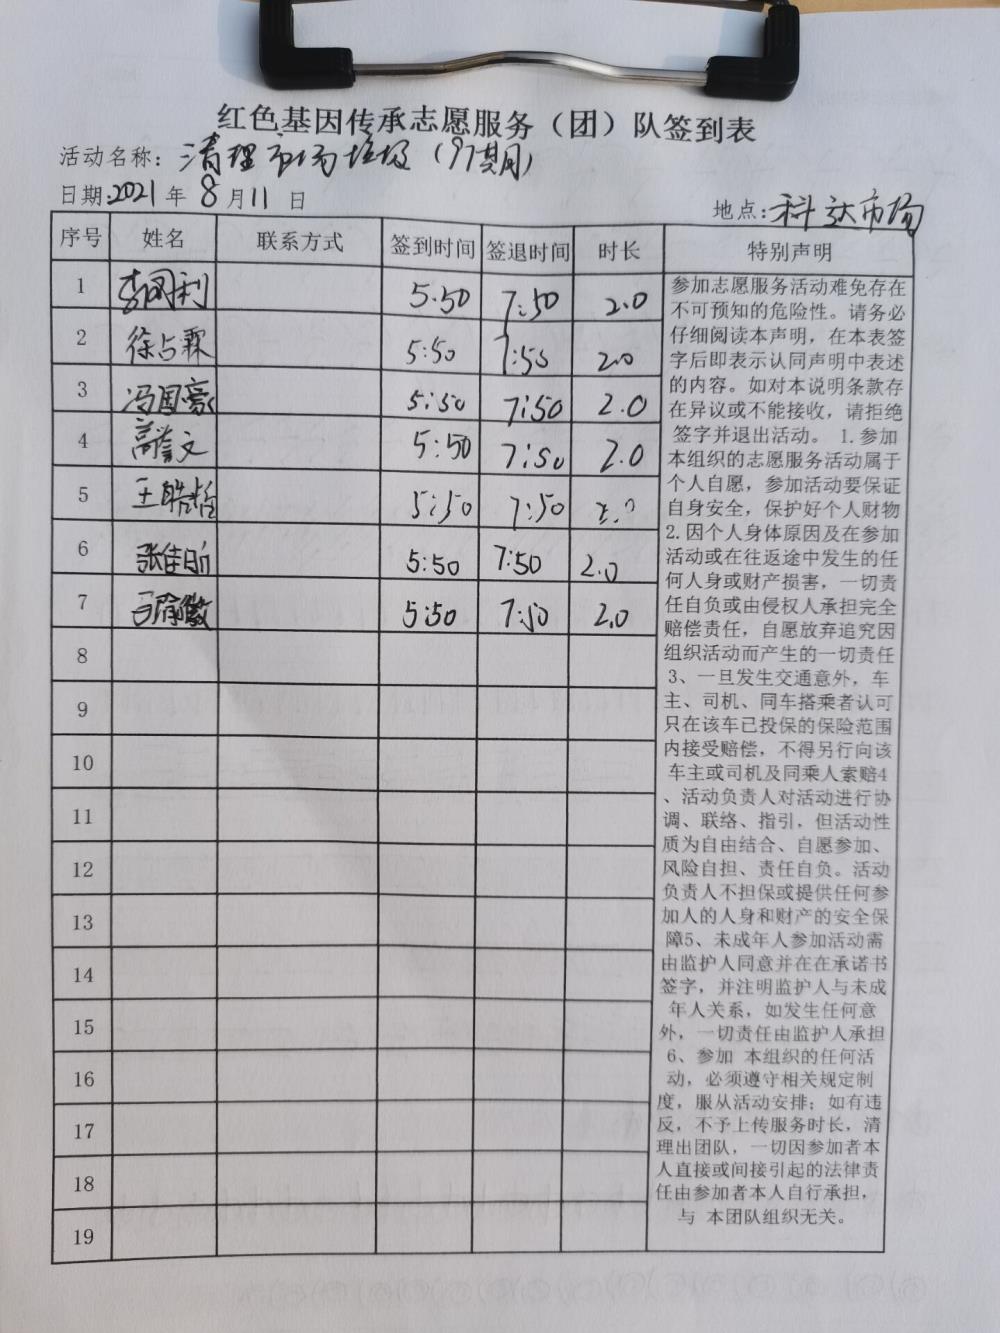 红色基因传承志愿服务（团）队签到表
活动名称：清理市场垃圾（97期）
日期:2021年8月11日
地点:科达市场
序号 姓名 联系方式 签到时间 签退时间 时长 特别声明
1 李国利 5:50 7:50 2.0
2 徐占霖 5:50 7:50 2.0
3 冯国豪 5:50 7:50 2.0
4 高誉文 5:50 7:50 2.0
5 王皓 5:50 7:50 2.0
6 张佳昕 5:50 7:50 2.0
7 5:50 7:50 2.0
8
9
10
11
12
13
14
15
16
17
18
19
参加志愿服务活动难免存在
不可预知的危险性。请务必
仔细阅读本声明，在本表签
字后即表示认同声明中表述
的内容。如对本说明条款存
在异议或不能接收，请拒绝
签字并退出活动。 1.参加
本组织的志愿服务活动属于
个人自愿，参加活动要保证
自身安全，保护好个人财物
2.因个人身体原因及在参加
活动或在往返途中发生的任
何人身或财产损害，一切责
任自负或由侵权人承担完全
赔偿责任，自愿放弃追究因
组织活动而产生的一切责任
3、一旦发生交通意外，车
主、司机、同车搭乘者认可
只在该车已投保的保险范围
内接受赔偿，不得另行向该
车主或司机及同乘人索赔4
、活动负责人对活动进行协
调、联络、指引，但活动性
质为自由结合、自愿参加、
风险自担、责任自负。活动
负责人不担保或提供任何参
加人的人身和财产的安全保
障5、未成年人参加活动需
由监护人同意并在在承诺书
签字，并注明监护人与未成
年人关系，如发生任何意
外，一切责任由监护人承担
6、参加 本组织的任何活
动，必须遵守相关规定制
度，服从活动安排；如有违
反，不予上传服务时长，清
理出团队，一切因参加者本
人直接或间接引起的法律责
任由参加者本人自行承担，
与 本团队组织无关。